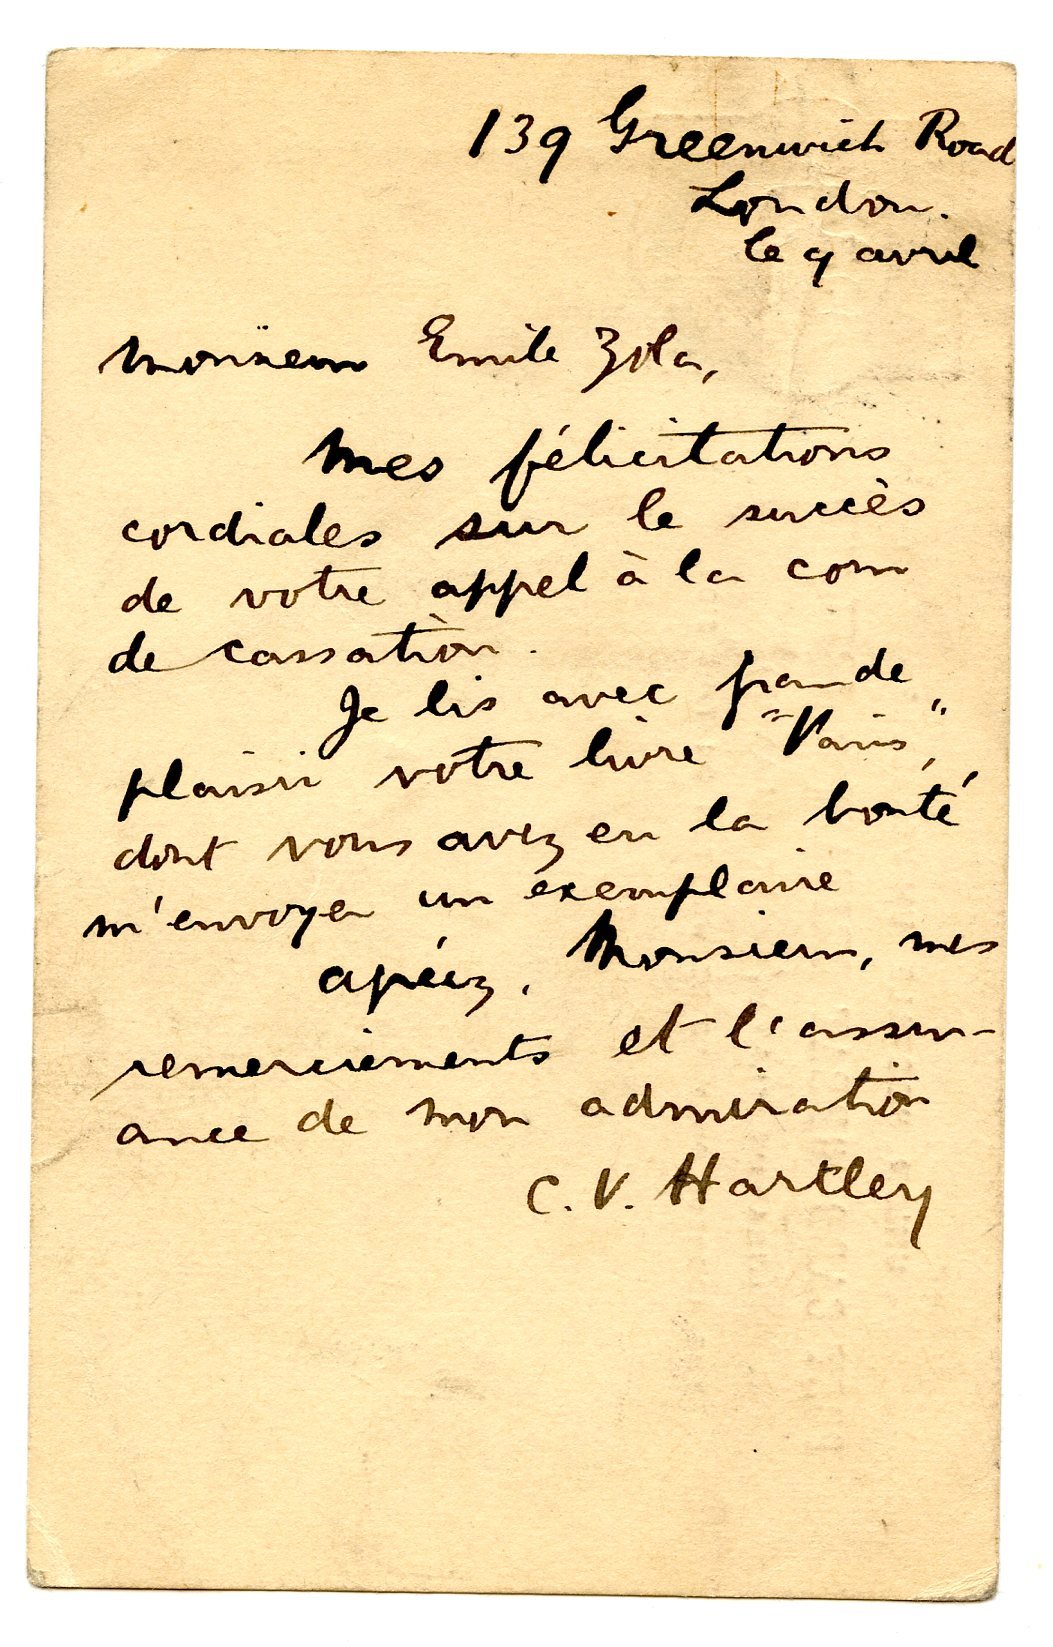 139 Greenwich Road
London.
le 9 avril
Monsieur Emile Zola,
Mes félicitations
cordiales sur le succès
de votre appel à la cour
de cassation.
Je lis avec grande
plaisir votre livre "Paris",
dont vous avez eu la bonté
m'envoyer un exemplaire
agréez, Monsieur, mes
remerciements et l'assur-
ance de mon admiration
C. V. Hartley